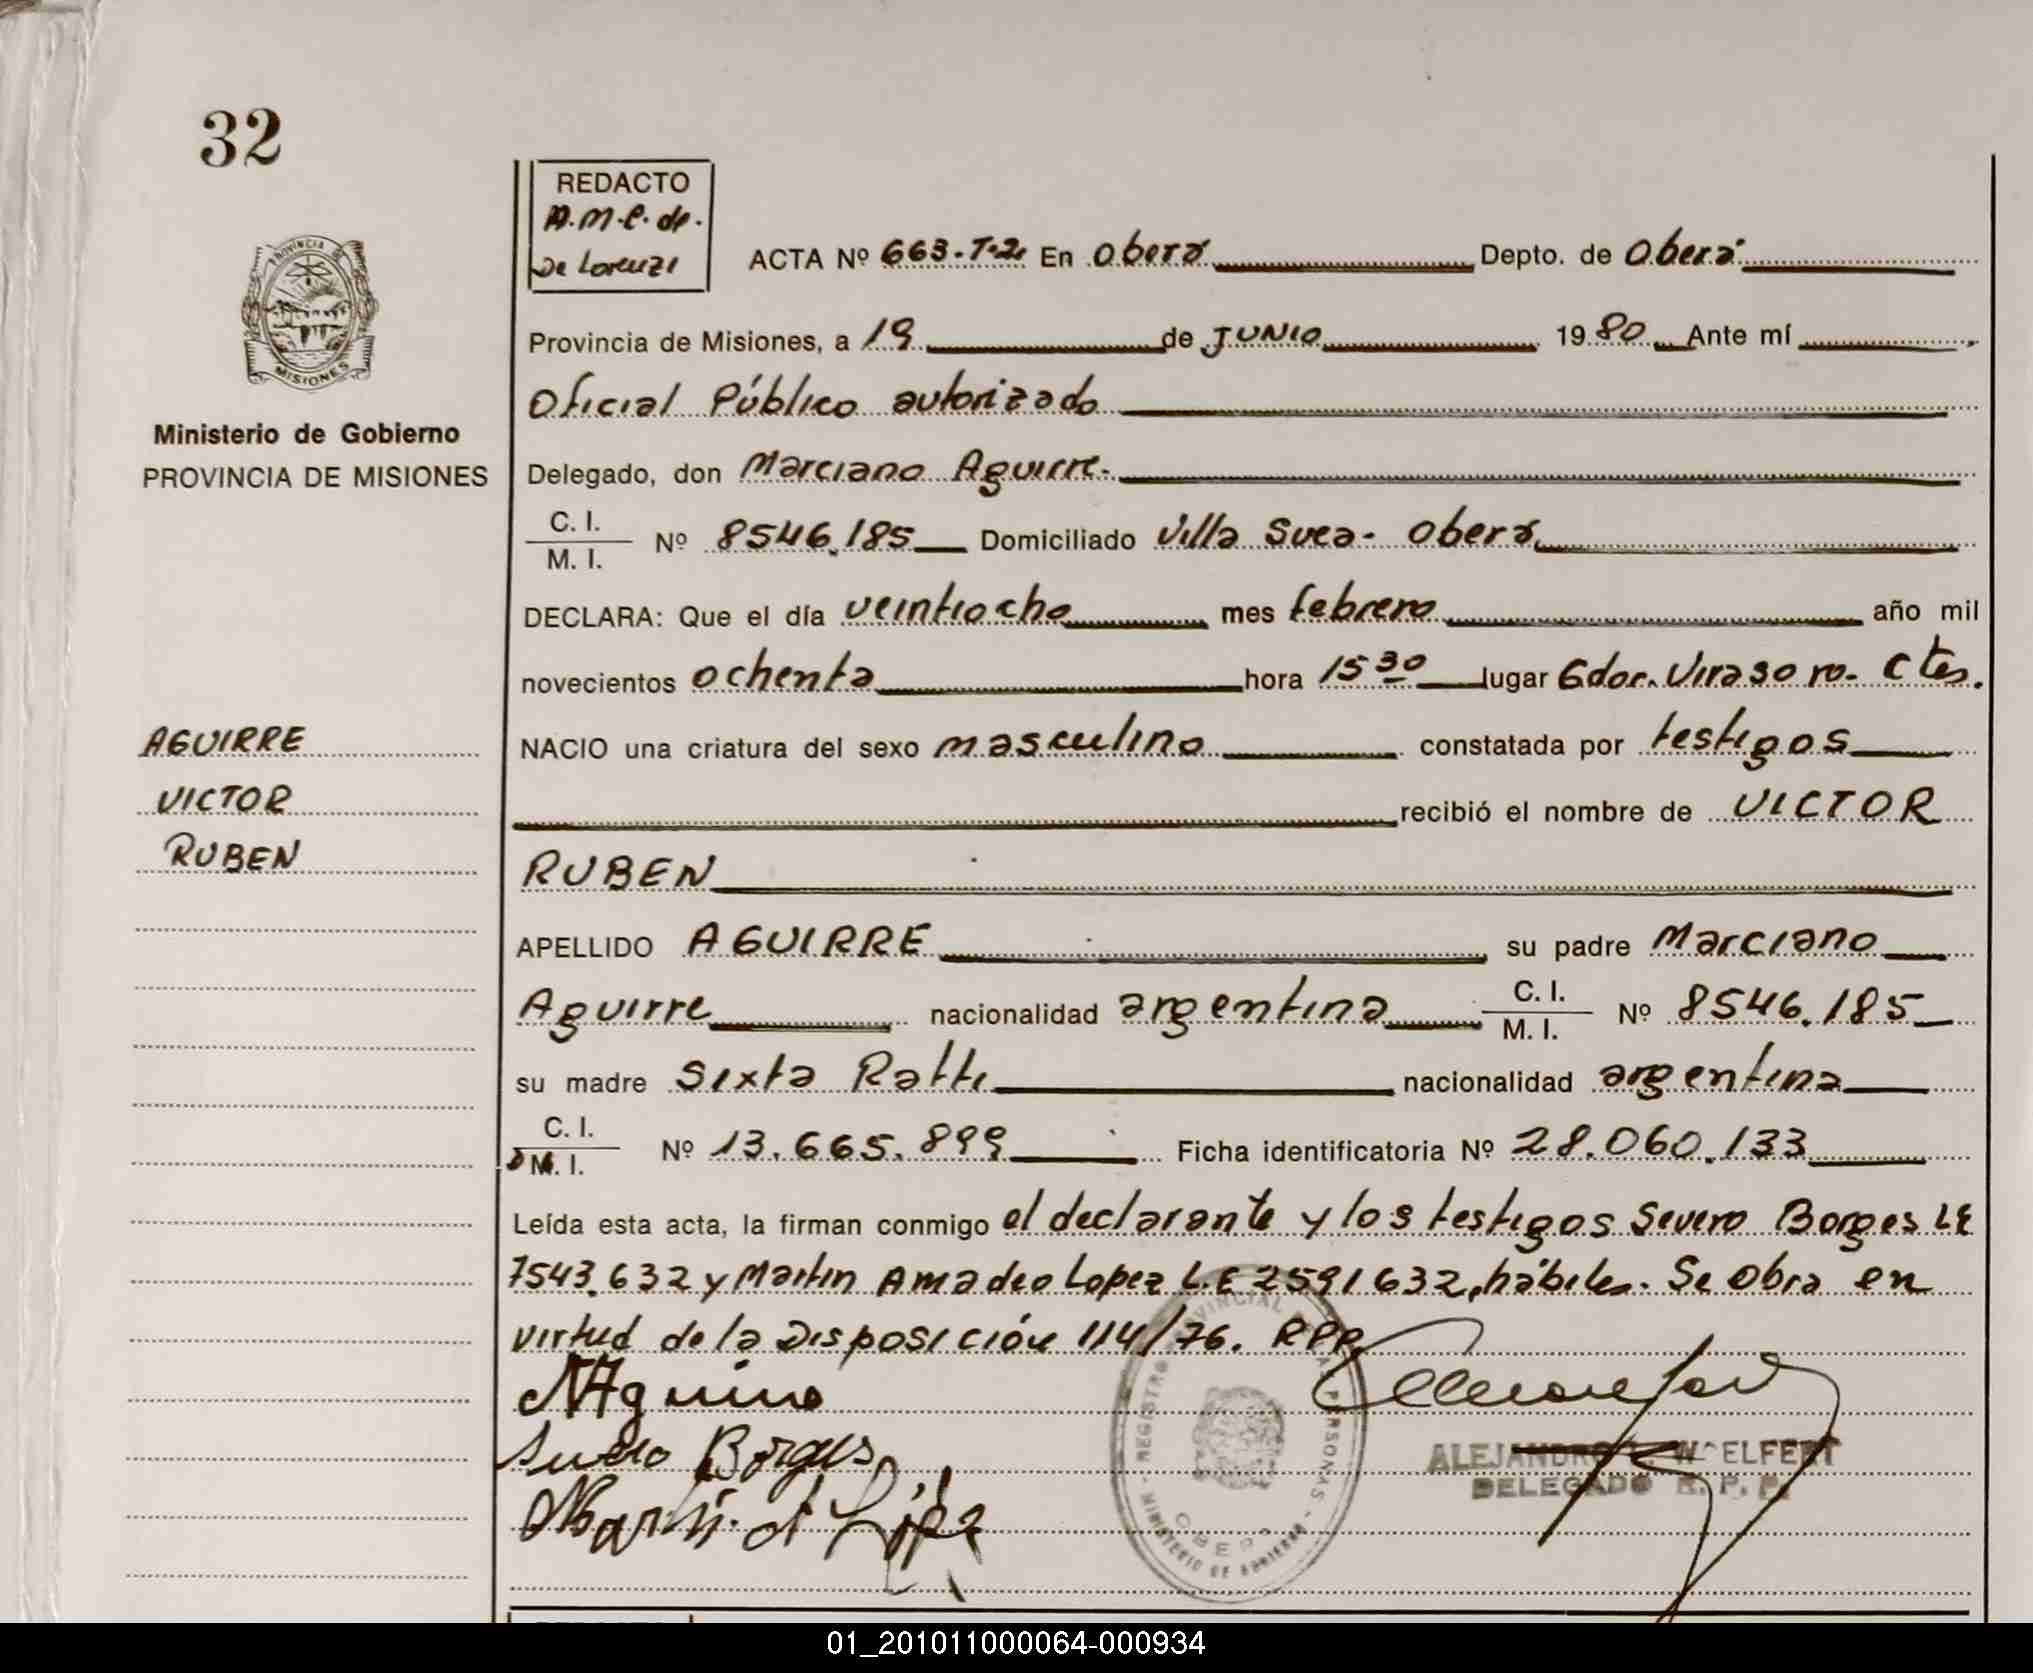 32
REDACTO
A.M.C. de.
De Lorenzi
ACTA Nº 663-T-2 En Oberá Depto. de Oberá
Provincia de Misiones, a 19 de JUNIO 1980 Ante mí
Oficial Público autorizado
PROVINCIA DE
MISIONES
Ministerio de Gobierno
PROVINCIA DE MISIONES
Delegado, don Marciano Aguirre.
C. I.
M. I. Nº 8546.185 Domiciliado Villa Svea - Oberá
DECLARA: Que el día veintiocho mes febrero año mil
novecientos ochenta hora 15 30 lugar Gdor. Virasoro. Ctes.
AGUIRRE
VICTOR
RUBEN
NACIO una criatura del sexo masculino constatada por testigos
recibió el nombre de VICTOR
RUBEN
APELLIDO AGUIRRE su padre Marciano
Aguirre nacionalidad argentina C. I. M. I. Nº 8546.185
su madre Sixta Ratti nacionalidad argentina
C. I.
M. I. Nº 13.665.899 Ficha identificatoria Nº 28.060.133
Leída esta acta, la firman conmigo el declarante y los testigos Severo Borges LE
7543.632 y Martin Amadeo Lopez L.E 2591632, hábiles. Se Obra en
virtud de la Disposición 114/76. RPP.
MAguirre
Severo Borges
Martin A López
REGISTRO PROVINCIAL DE LAS PERSONAS - MINISTERIO DE GOBIERNO
OBERA
ALEJANDRO WOELFERT
DELEGADO R. P. P.
01_201011000064-000934